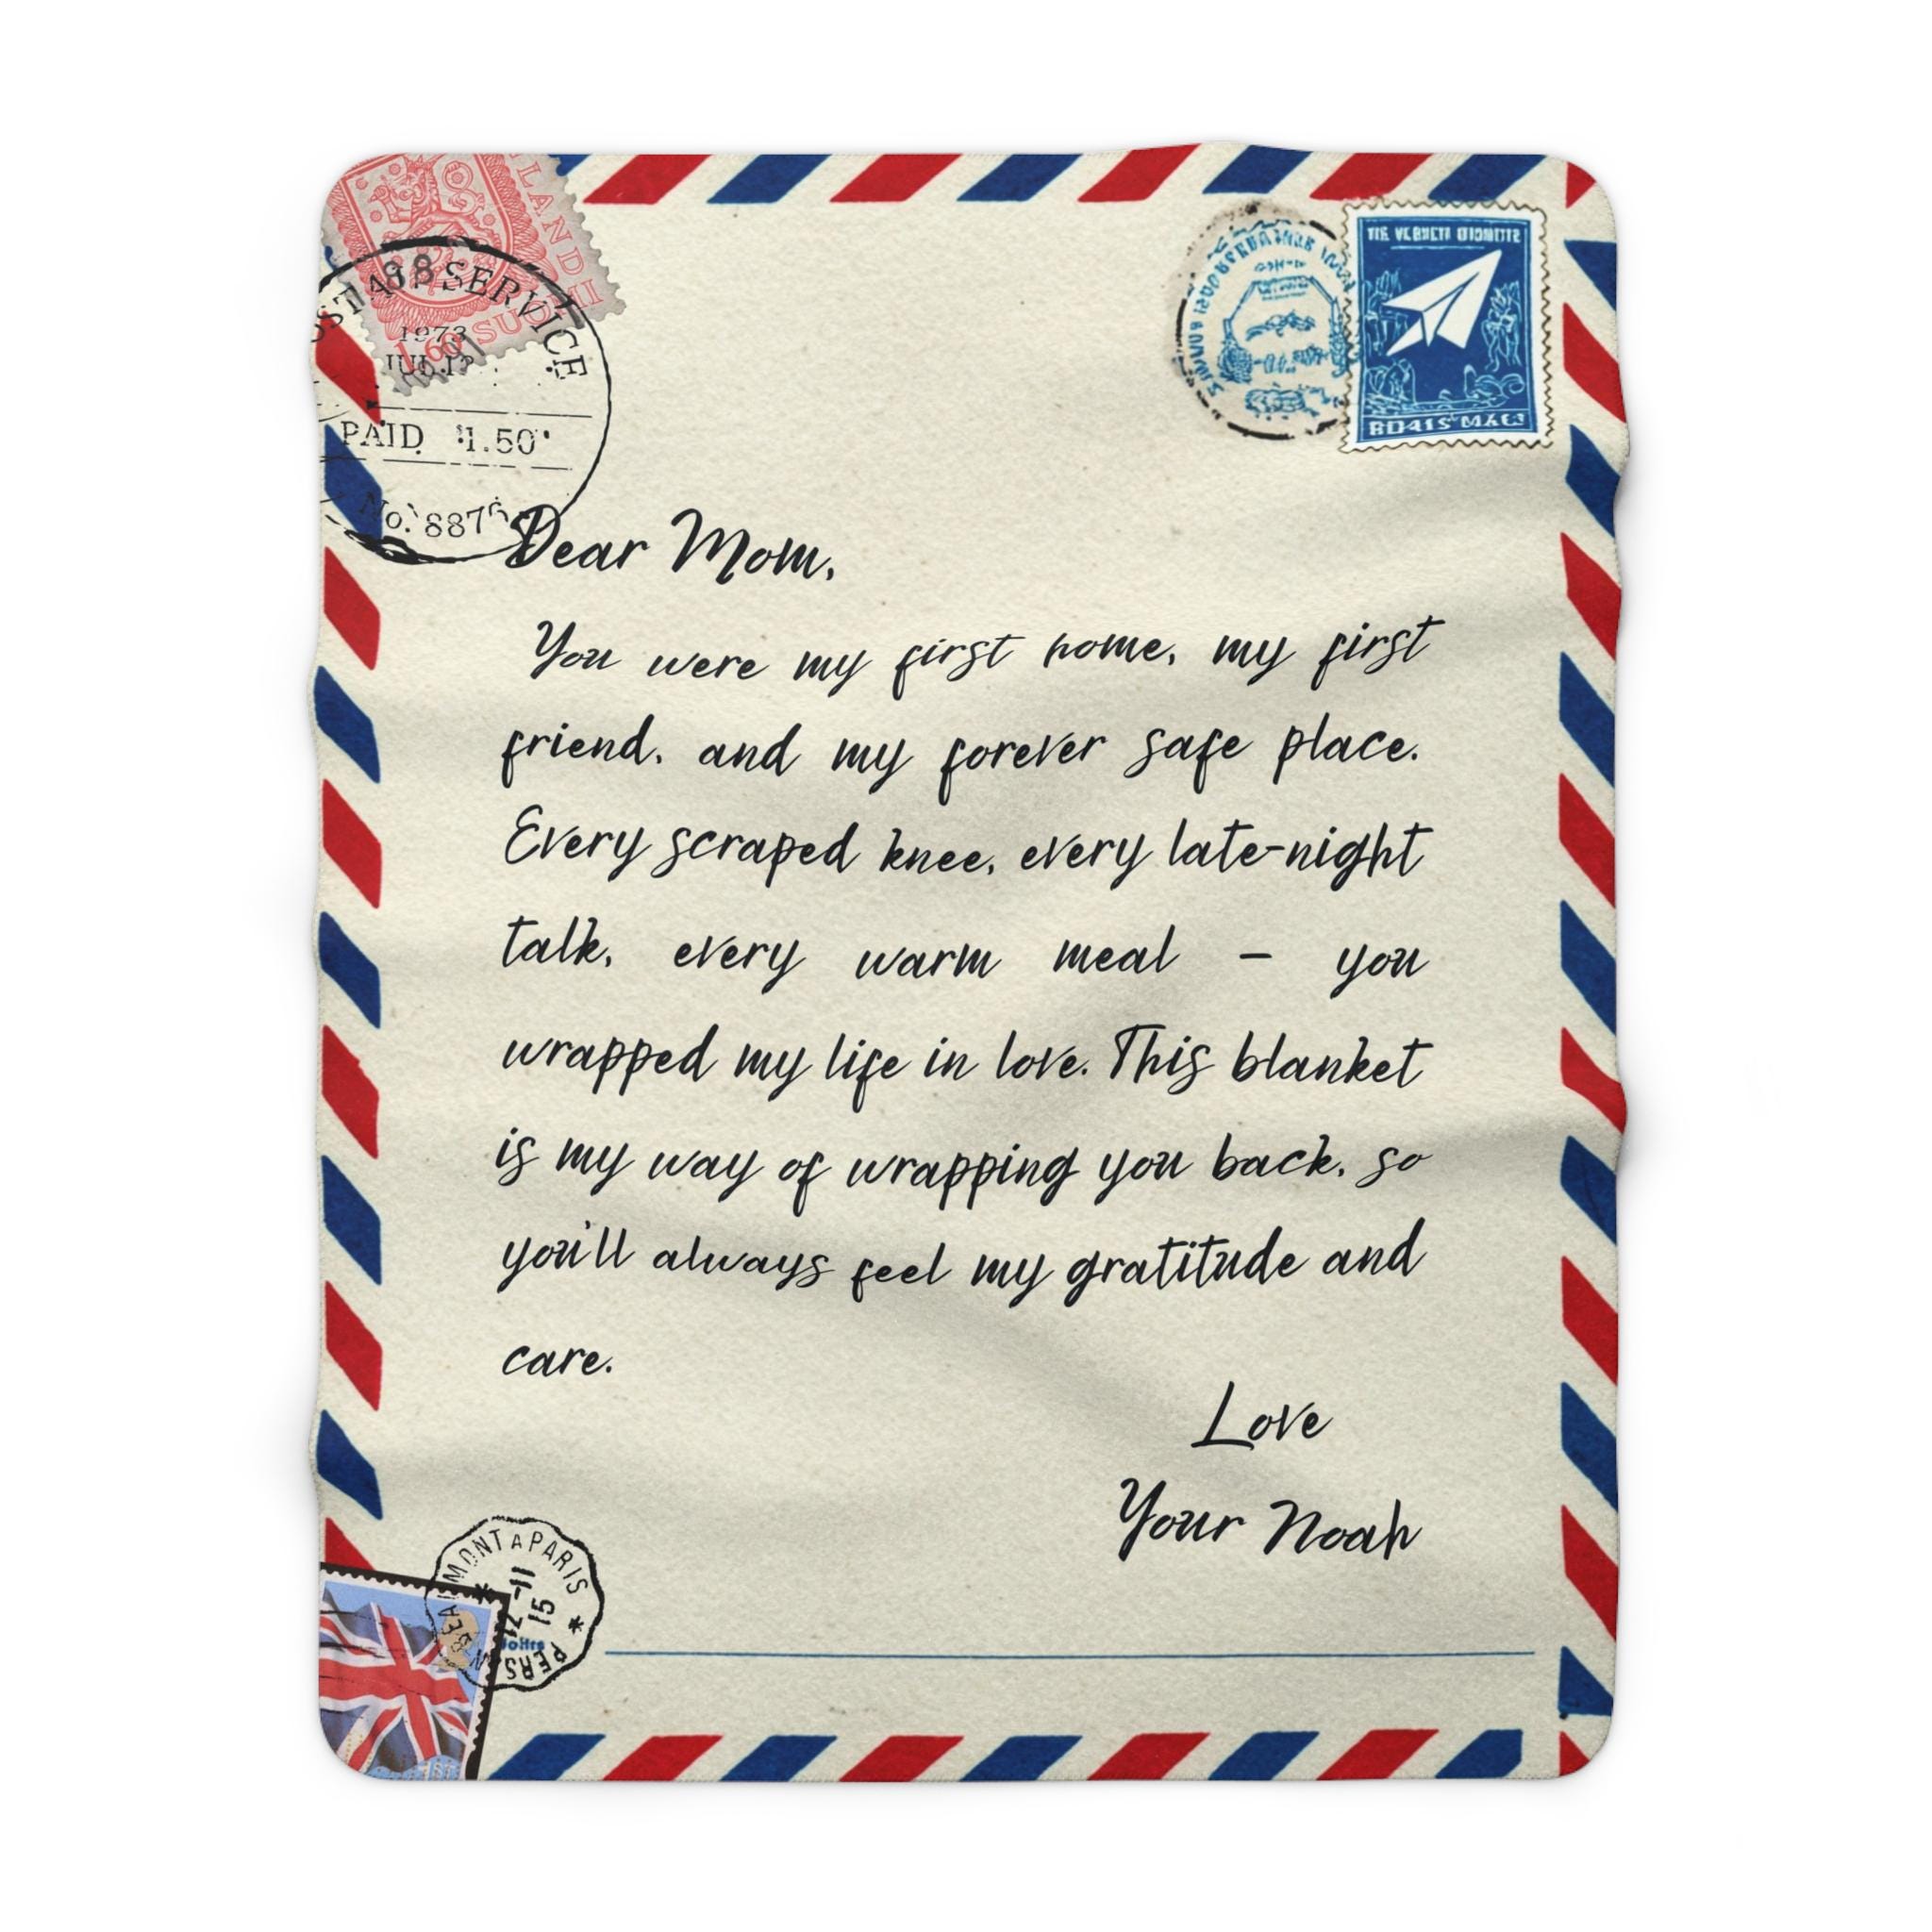 LAND
SUOMI
1.60
POSTAL SERVICE
1973
JUL 12
PAID $1.50
No. 8876
Dear Mom,
You were my first home, my first
friend, and my forever safe place.
Every scraped knee, every late-night
talk, every warm meal – you
wrapped my life in love. This blanket
is my way of wrapping you back, so
you'll always feel my gratitude and
care.
Love
Your Noah
MONT A PARIS
12-11
15
PERS